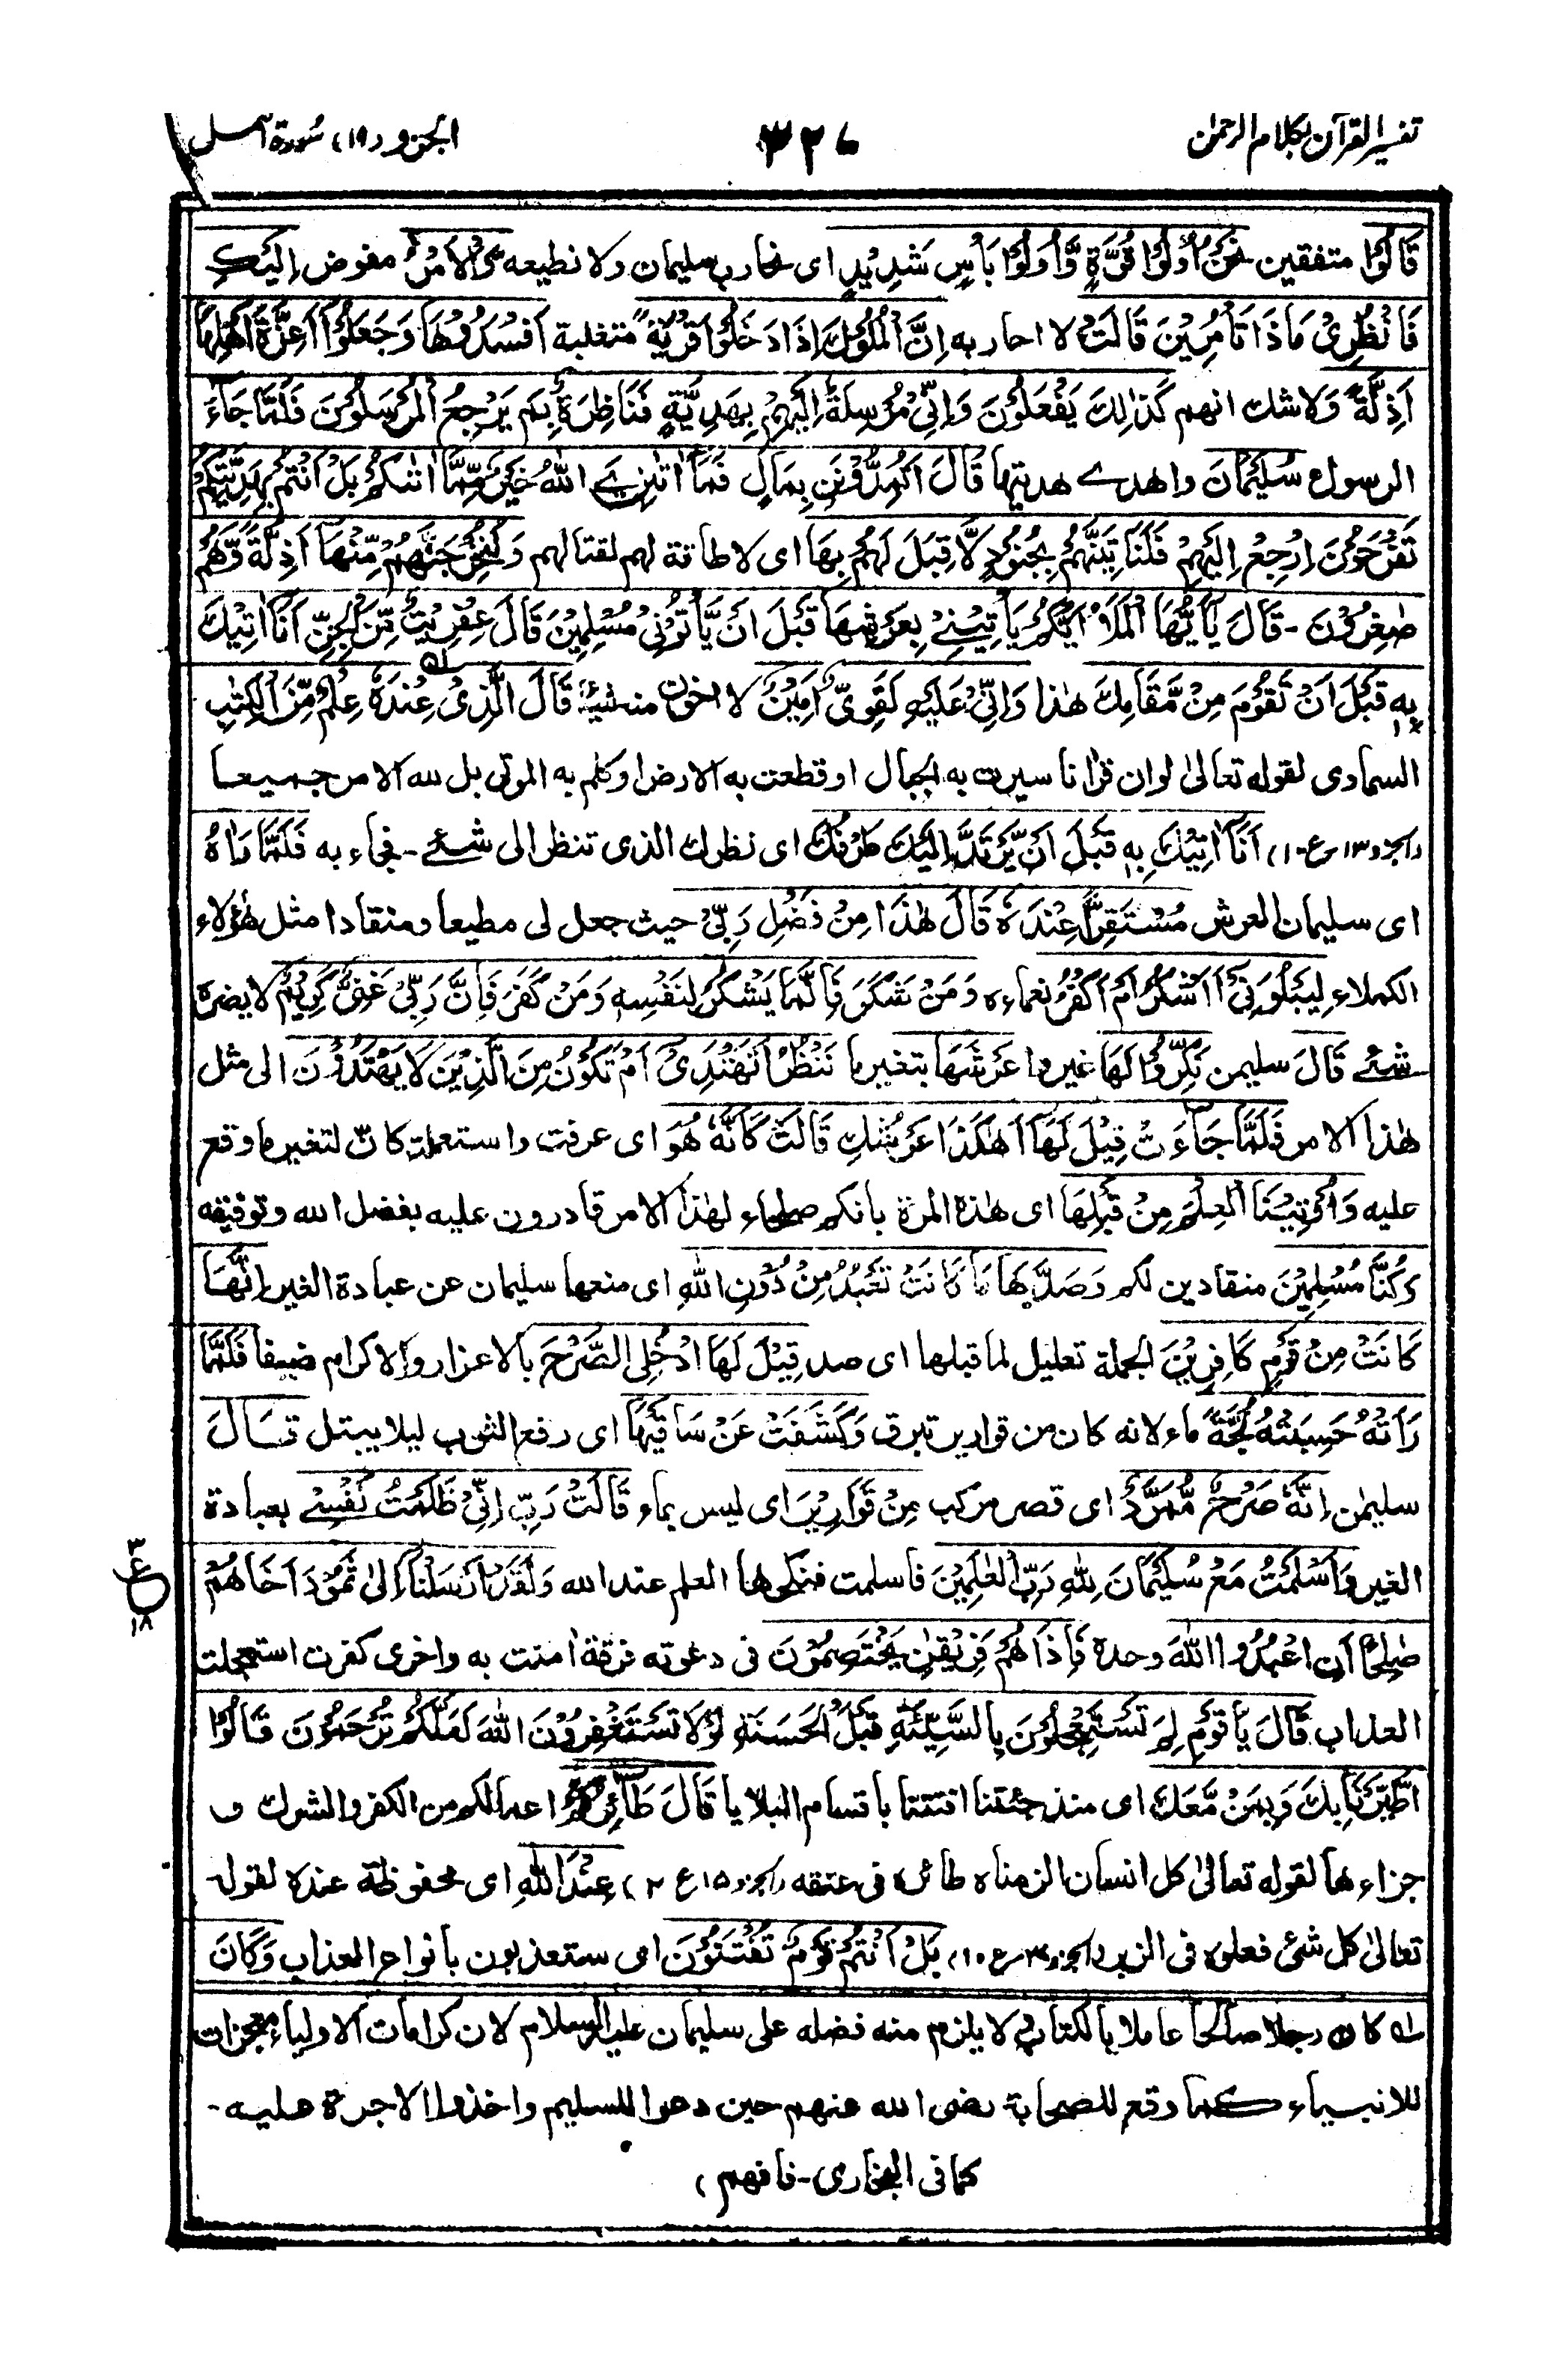 تفسير القرآن بكلام الرحمن
٣٢٧
الجزو (١٩) سُورة النمل
قَالُوْا متفقين نَحْنُ اُولُوْا قُوَّةٍ وَّاُولُوْا بَاْسٍ شَدِيْدٍ اى نحارب سليمان ولا نطيعه وَّالْاَمْرُ مفوض اِلَيْكِ
فَانْظُرِىْ مَاذَا تَاْمُرِيْنَ قَالَتْ لا احاربه اِنَّ الْمُلُوْكَ اِذَا دَخَلُوْا قَرْيَةً متغلبة اَفْسَدُوْهَا وَجَعَلُوْا اَعِزَّةَ اَهْلِهَا
اَذِلَّةً وَلاشك انهم كَذٰلِكَ يَفْعَلُوْنَ وَاِنِّىْ مُرْسِلَةٌ اِلَيْهِمْ بِهَدِيَّةٍ فَنَاظِرَةٌ بِمَ يَرْجِعُ الْمُرْسَلُوْنَ فَلَمَّا جَآءَ
الرسول سُلَيْمَانَ واهدے هديتها قَالَ اَتُمِدُّوْنَنِ بِمَالٍ فَمَآ اٰتٰنِےَ اللّٰهُ خَيْرٌ مِّمَّآ اٰتٰىكُمْ بَلْ اَنْتُمْ بِهَدِيَّتِكُمْ
تَفْرَحُوْنَ اِرْجِعْ اِلَيْهِمْ فَلَنَاْتِيَنَّهُمْ بِجُنُوْدٍ لَّا قِبَلَ لَهُمْ بِهَا اى لا طاقة لهم لقتالهم وَلَنُخْرِجَنَّهُمْ مِّنْهَآ اَذِلَّةً وَّهُمْ
صٰغِرُوْنَ - قَالَ يَآاَيُّهَا الْمَلَؤُا اَيُّكُمْ يَاْتِيْنِےْ بِعَرْشِهَا قَبْلَ اَنْ يَّاْتُوْنِىْ مُسْلِمِيْنَ قَالَ عِفْرِيْتٌ مِّنَ الْجِنِّ اَنَا اٰتِيْكَ
بِهٖ قَبْلَ اَنْ تَقُوْمَ مِنْ مَّقَامِكَ هٰذا وَاِنِّىْ عَلَيْهِ لَقَوِىٌّ اَمِيْنٌ لا اخون منه شيئا قَالَ الَّذِىْ عِنْدَهٗ عِلْمٌ مِّنَ الْكِتٰبِ
السماوى لقوله تعالىٰ لو ان قراٰنا سيرت به الجبال او قطعت به الارض او كلم به الموتى بل لله الامر جميعا
(الجزو ١٣ ع ١٠) اَنَا اٰتِيْكَ بِهٖ قَبْلَ اَنْ يَّرْتَدَّ اِلَيْكَ طَرْفُكَ اى نظرك الذى تنظر الى شئے - فجاء به فَلَمَّا رَاٰهُ
اى سليمان العرش مُسْتَقِرًّا عِنْدَهٗ قَالَ هٰذَا مِنْ فَضْلِ رَبِّىْ حيث جعل لى مطيعا ومنقادا مثل هٰؤلاء
الكملاء لِيَبْلُوَنِىْٓ اَاَشْكُرُ اَمْ اَكْفُرُ نعماءه وَمَنْ شَكَرَ فَاِنَّمَا يَشْكُرُ لِنَفْسِهٖ وَمَنْ كَفَرَ فَاِنَّ رَبِّىْ غَنِىٌّ كَرِيْمٌ لا يضره
شئے قَالَ سليمن نَكِّرُوْا لَهَا غيروا عَرْشَهَا بتغيير ما نَنْظُرْ اَتَهْتَدِىْٓ اَمْ تَكُوْنُ مِنَ الَّذِيْنَ لَا يَهْتَدُوْنَ الى مثل
هٰذا الامر فَلَمَّا جَآءَتْ قِيْلَ لَهَآ اَهٰكَذَا عَرْشُكِ قَالَتْ كَاَنَّهٗ هُوَ اى عرفت واستعملت كانّ لتغير ما وقع
عليه وَاُوْتِيْنَا الْعِلْمَ مِنْ قَبْلِهَا اى هٰذه المرة بانكم صلحاء لهٰذا الامر قادرون عليه بفضل الله وتوفيقه
وَكُنَّا مُسْلِمِيْنَ منقادين لكم وَصَدَّهَا مَا كَانَتْ تَعْبُدُ مِنْ دُوْنِ اللّٰهِ اى منعها سليمان عن عبادة الغير اِنَّهَا
كَانَتْ مِنْ قَوْمٍ كَافِرِيْنَ الجملة تعليل لما قبلها اى صد قِيْلَ لَهَا ادْخُلِى الصَّرْحَ بالاعزاز والاكرام ضيفا فَلَمَّا
رَاَتْهُ حَسِبَتْهُ لُجَّةً ماء لانه كان من قوارير تبرق وَّكَشَفَتْ عَنْ سَاقَيْهَا اى رفع الثوب ليلا يبتل قَالَ
سليمٰن اِنَّهٗ صَرْحٌ مُّمَرَّدٌ اى قصر مركب مِنْ قَوَارِيْرَ اى ليس بماء قَالَتْ رَبِّ اِنِّىْ ظَلَمْتُ نَفْسِےْ بعبادة
الغير وَاَسْلَمْتُ مَعَ سُلَيْمَانَ لِلّٰهِ رَبِّ الْعٰلَمِيْنَ فاسلمت فنكحها العلم عند الله وَلَقَدْ اَرْسَلْنَا اِلٰى ثَمُوْدَ اَخَاهُمْ
٣
ع
١٨
صٰلِحًا اَنِ اعْبُدُوا اللّٰهَ وحده فَاِذَا هُمْ فَرِيْقٰنِ يَخْتَصِمُوْنَ فى دعوته فرقة اٰمنت به واخرى كفرت استعجلت
العذاب قَالَ يَا قَوْمِ لِمَ تَسْتَعْجِلُوْنَ بِالسَّيِّئَةِ قَبْلَ الْحَسَنَةِ لَوْلَا تَسْتَغْفِرُوْنَ اللّٰهَ لَعَلَّكُمْ تُرْحَمُوْنَ قَالُوْا
اطَّيَّرْنَا بِكَ وَبِمَنْ مَّعَكَ اى منذ جئتنا افتتنا باقسام البلايا قَالَ طَآئِرُكُمْ اعمالكم من الكفر والشرك و
جزاءها لقوله تعالىٰ كل انسان الزمناه طائره فى عنقه (الجزو ١٥ ع ٢) عِنْدَ اللّٰهِ اى محفوظة عنده لقوله
تعالىٰ كل شئ فعلوه فى الزبر (الجزو ٢٧ ع ١٠) بَلْ اَنْتُمْ قَوْمٌ تُفْتَنُوْنَ اى ستعذبون بانواع العذاب وَكَانَ
لے كان رجلا صالحا عاملا بالكتاب لا يلزم منه فضله على سليمان عليه السلام لان كرامات الاولياء معجزات
للانبياء كما وقع للصحابة رضى الله عنهم حين دعوا للسليم واخذوا الاجرة عليه -
كما فى البخارى - فافهم)